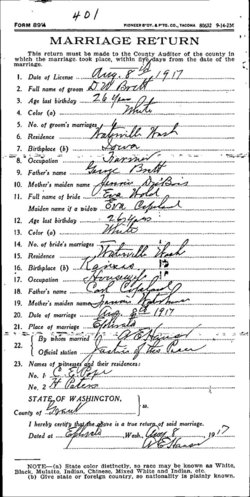 401
FORM 89¼ PIONEER B'DY. & PTG. CO., TACOMA 85632 9-14-2M
MARRIAGE RETURN
This return must be made to the County Auditor of the county in
which the marriage took place, within five days from the date of the
marriage.
1. Date of License Aug. 8th 1917
2. Full name of groom D. W. Brett
3. Age last birthday 26 Years
4. Color (a) White
5. No. of groom's marriages
6. Residence Waterville Wash
7. Birthplace (b) Iowa
8. Occupation Farmer
9. Father's name George Brett
10. Mother's maiden name Jennie
11. Full name of bride Eva Wold
Maiden name if a widow Eva Copeland
12. Age last birthday 26 Years
13. Color (a) White
14. No. of bride's marriages
15. Residence Waterville Wash
16. Birthplace (b) Kansas
17. Occupation Housewife
18. Father's name Copeland
19. Mother's maiden name
20. Date of marriage Aug 8th 1917
21. Place of marriage Ephrata
22. By whom married
Official station Justice of the Peace
23. Names of witnesses and their residences:
No. 1
No. 2 Peters
STATE OF WASHINGTON,
County of Grant
I hereby certify that the above is a true and correct return.
Dated at Ephrata Wash., Aug 8 1917
NOTE—(a) State color distinctly, so race may be known as White,
Black, Mulatto, Indian, Chinese, Mixed White and Indian, etc.
(b) Give state or foreign country, so nationality is plainly known.